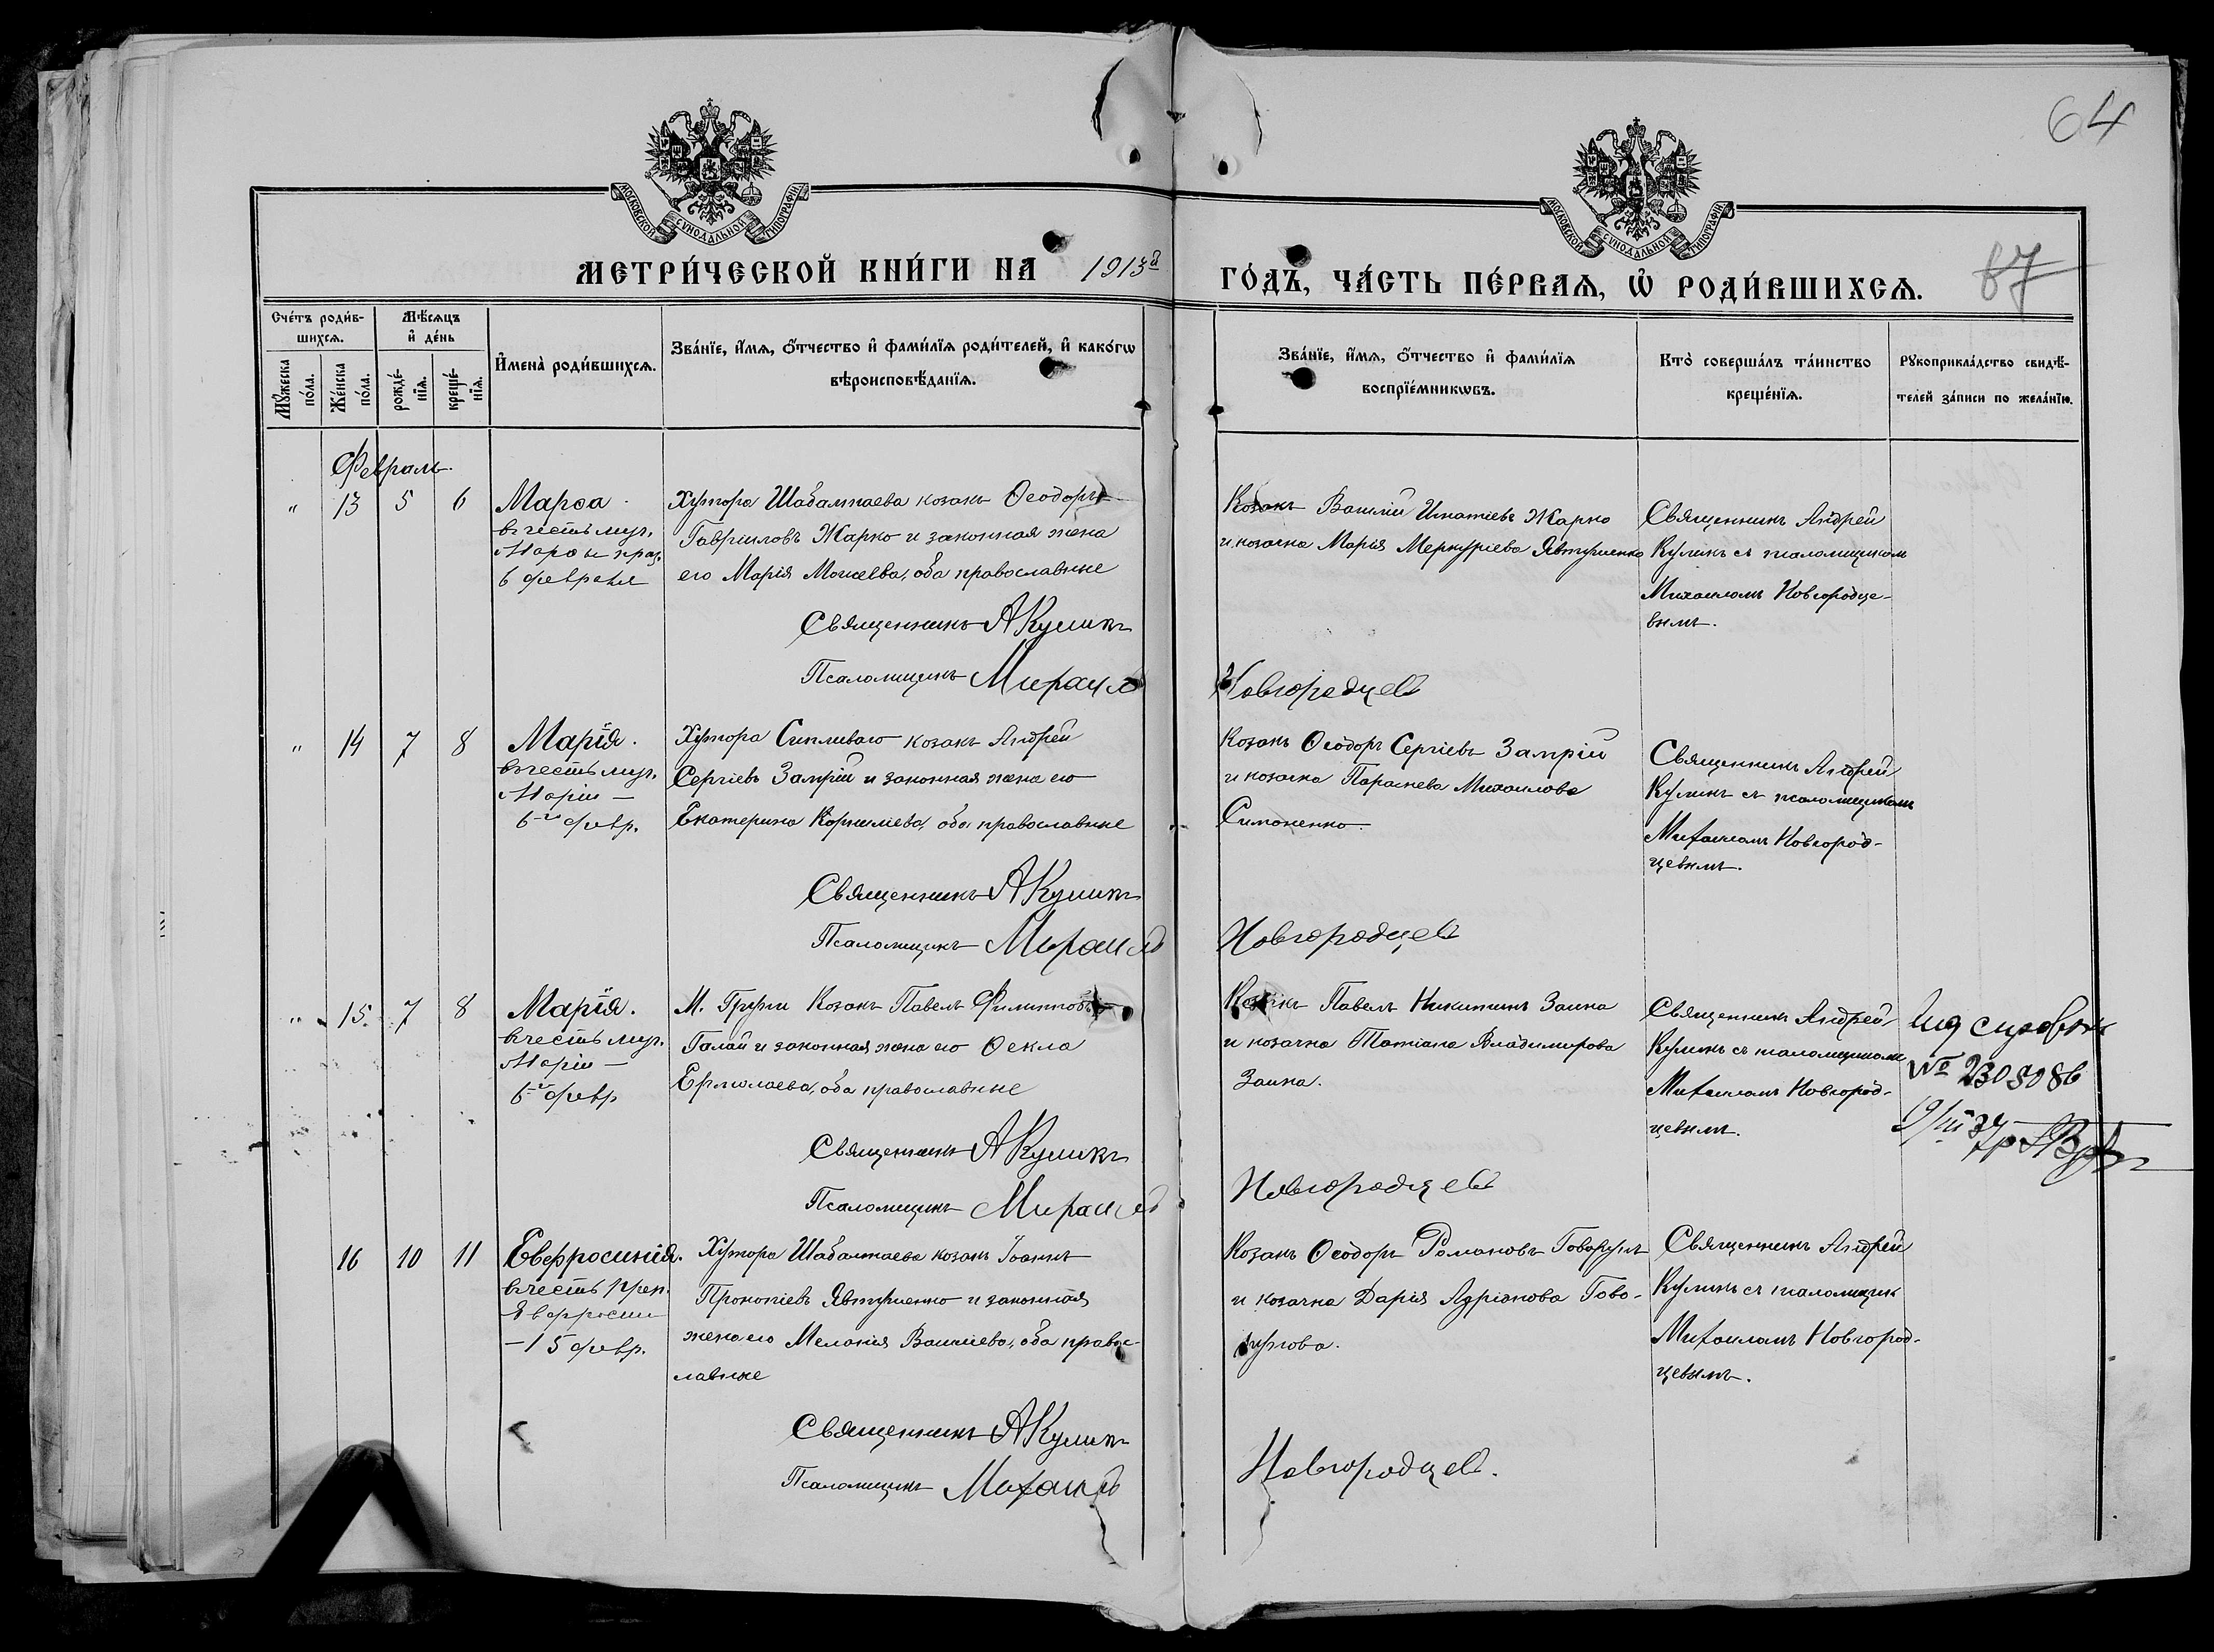 64
МОСКОВСКОЙ СУНОДАЛЬНОЙ ТИПОГРАФІИ
МОСКОВСКОЙ СУНОДАЛЬНОЙ ТИПОГРАФІИ
МЕТРИ́ЧЕСКОЙ КНИ́ГИ НА 1913й ГО́ДЪ, ЧА́СТЬ ПЕ́РВАѦ, Ѽ РОДИ́ВШИХСѦ.
87
Сче́тъ роди́в-
шихсѧ.
Мꙋжеска по́ла.
Же́нска по́ла.
Мѣ́сѧцъ
и҆ де́нь
рожде́-
нїѧ.
креще́-
нїѧ.
И҆мена̀ роди́вшихсѧ.
Зва́нїе, и҆́мѧ, ѻ҆́тчество и҆ фами́лїѧ роди́телей, и҆ како́гѡ
вѣроисповѣ́данїѧ.
Зва́нїе, и҆́мѧ, ѻ҆́тчество и҆ фами́лїѧ
воспрїе́мникѡвъ.
Кто̀ соверша́лъ та́инство
креще́нїѧ.
Рꙋкоприкла́дство свидѣ́-
телей за́писи по жела́нїю.
Февраль.
" 13 5 6
Марѳа
въ честь муч.
Марѳы праз.
6 февраля
Хутора Шабалтаева козакъ Ѳеодоръ
Гавриловъ Жарко и законная жена
его Марія Моисеева, оба православные
Священникъ АКуликъ
Псаломщикъ Михаилъ
Козакъ Василій Игнатіевъ Жарко
и козачка Марія Меркуріева Явтушенко
Новгородцевъ
Священникъ Андрей
Куликъ съ псаломщикомъ
Михаиломъ Новгородце-
вымъ.
" 14 7 8
Марія.
въ честь муч.
Маріи —
6го февр.
Хутора Сипливаго козакъ Андрей
Сергіевъ Замрій и законная жена его
Екатерина Корниліева, оба православные
Священникъ АКуликъ
Псаломщикъ Михаилъ
Козакъ Ѳеодоръ Сергіевъ Замрій
и козачка Параскева Михаилова
Симоненко.
Новгородцевъ
Священникъ Андрей
Куликъ съ псаломщикомъ
Михаиломъ Новгород-
цевымъ.
" 15. 7 8
Марія.
въ честь муч.
Маріи —
6й февр
М. Груни Козакъ Павелъ Филипповъ
Галай и законная жена его Ѳекла
Ермолаева, оба православные
Священникъ АКуликъ
Псаломщикъ Михаилъ
Козакъ Павелъ Никитинъ Заика
и козачка Татіана Владимирова
Заика.
Новгородцевъ
Священникъ Андрей
Куликъ съ псаломщикомъ
Михаиломъ Новгород-
цевымъ.
№ 2308086
19/III 37р
16 10 11
Евфросинія.
въ честь преп.
Евфросин
– 15 февр.
Хутора Шабалтаева козакъ Іоаннъ
Прокопіевъ Явтушенко и законная
жена его Меланія Василіева, оба правос-
лавные
Священникъ АКуликъ
Псаломщикъ Михаилъ
Козакъ Ѳеодоръ Романовъ Говорунъ
и козачка Дарія Адріанова Гово-
рунова.
Новгородцевъ.
Священникъ Андрей
Куликъ съ псаломщик
Михаиломъ Новгород-
цевымъ.